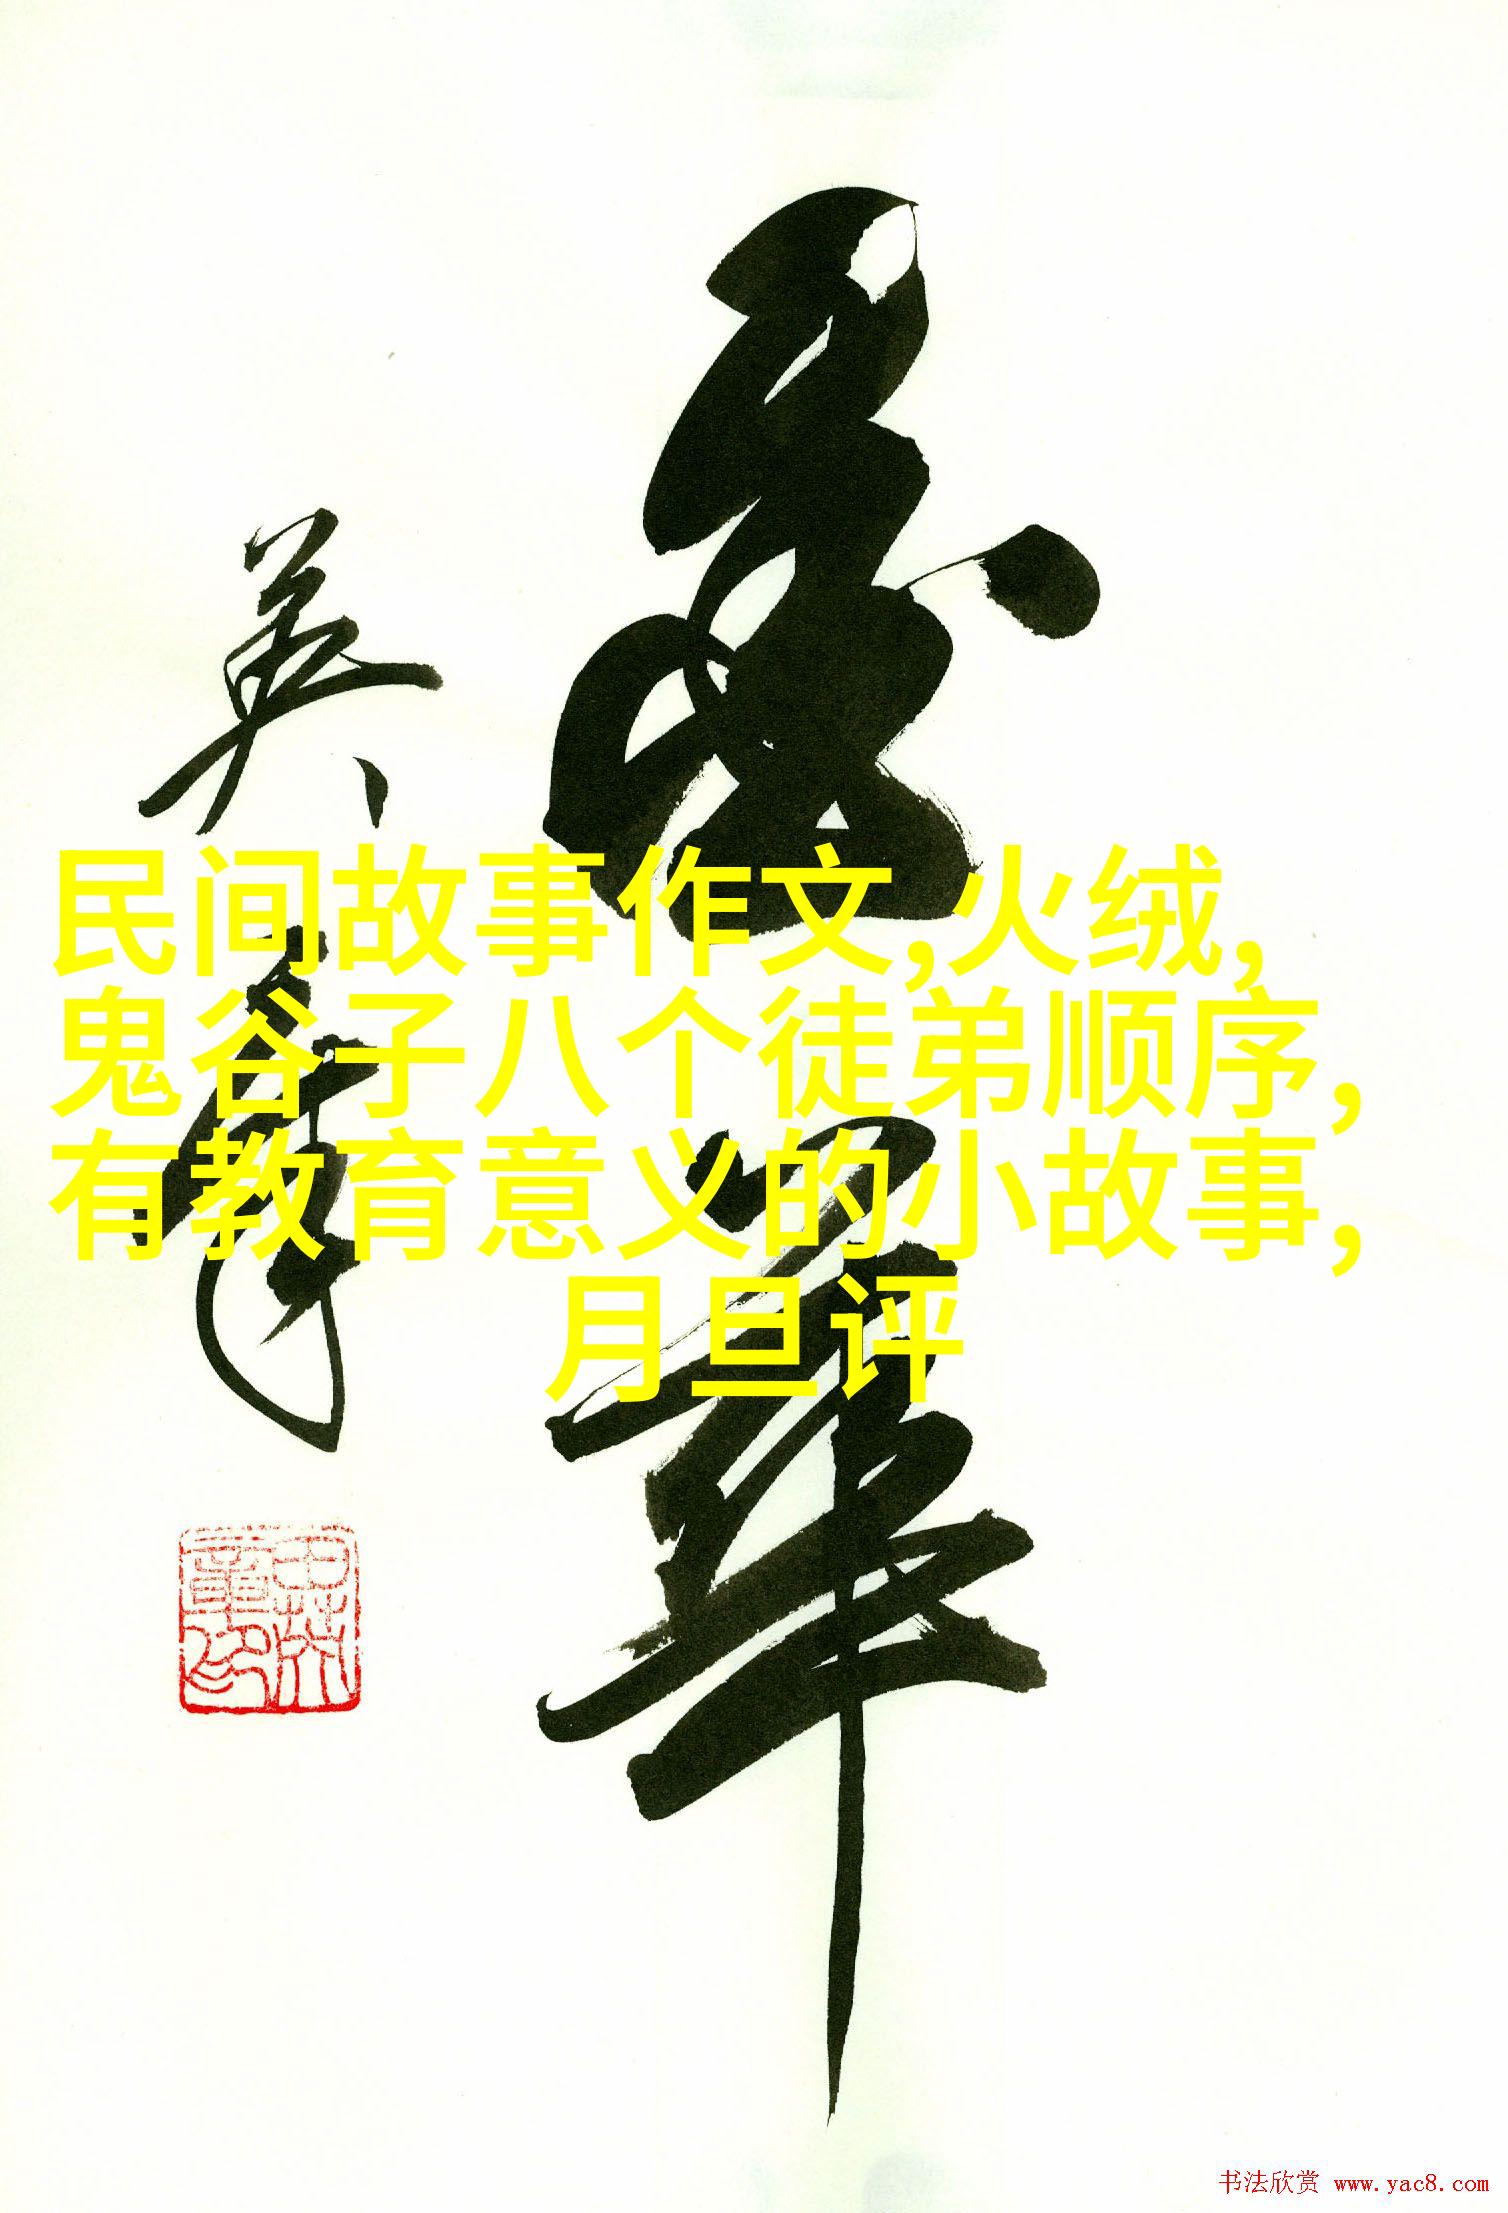 民间故事作文,火绒,
鬼谷子八个徒弟顺序,
有教育意义的小故事,
月旦评
英
书法欣赏 www.yac8.com